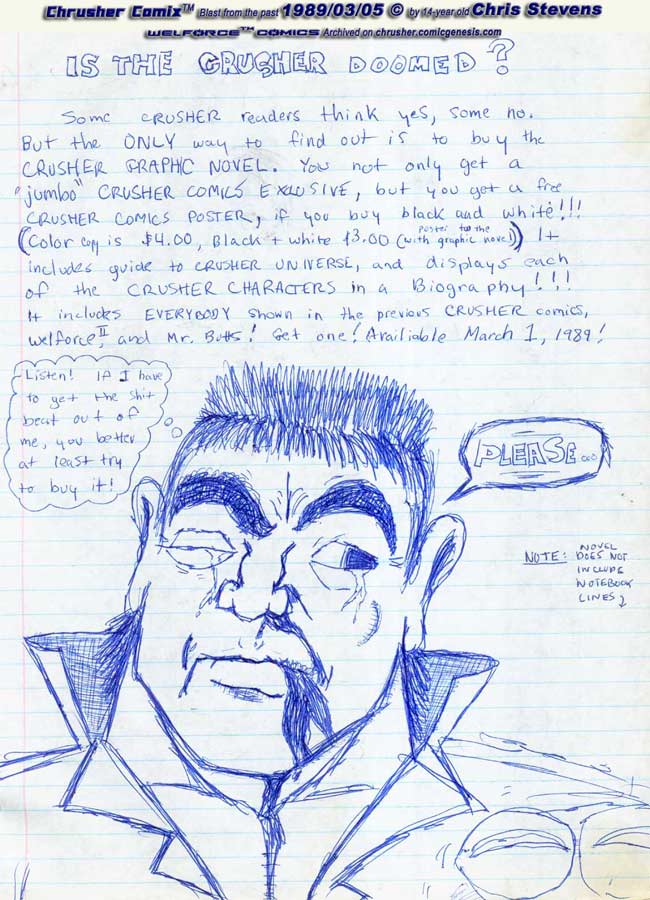 Chrusher Comix™ Blast from the past 1989/03/05 © by 14-year old Chris Stevens
WELFORCE™ COMICS Archived on chrusher.comicgenesis.com
IS THE CRUSHER DOOMED?
Some CRUSHER readers think yes, some no.
But the ONLY way to find out is to buy the
CRUSHER GRAPHIC NOVEL. You not only get a
"jumbo" CRUSHER COMICS EXLUSIVE, but you get a free
CRUSHER COMICS POSTER, if you buy black and white!!!
(Color copy is $4.00, Black + white $3.00 (with graphic novel)) It
poster too the
includes guide to CRUSHER UNIVERSE, and displays each
of the CRUSHER CHARACTERS in a Biography!!!
It includes EVERYBODY shown in the previous CRUSHER comics,
Welforce II, and Mr. Butts! Get one! Availiable March 1, 1989!
Listen! If I have
to get the shit
beat out of
me, you better
at least try
to buy it!
PLEASE...
NOTE: NOVEL
DOES NOT
INCLUDE
NOTEBOOK
LINES